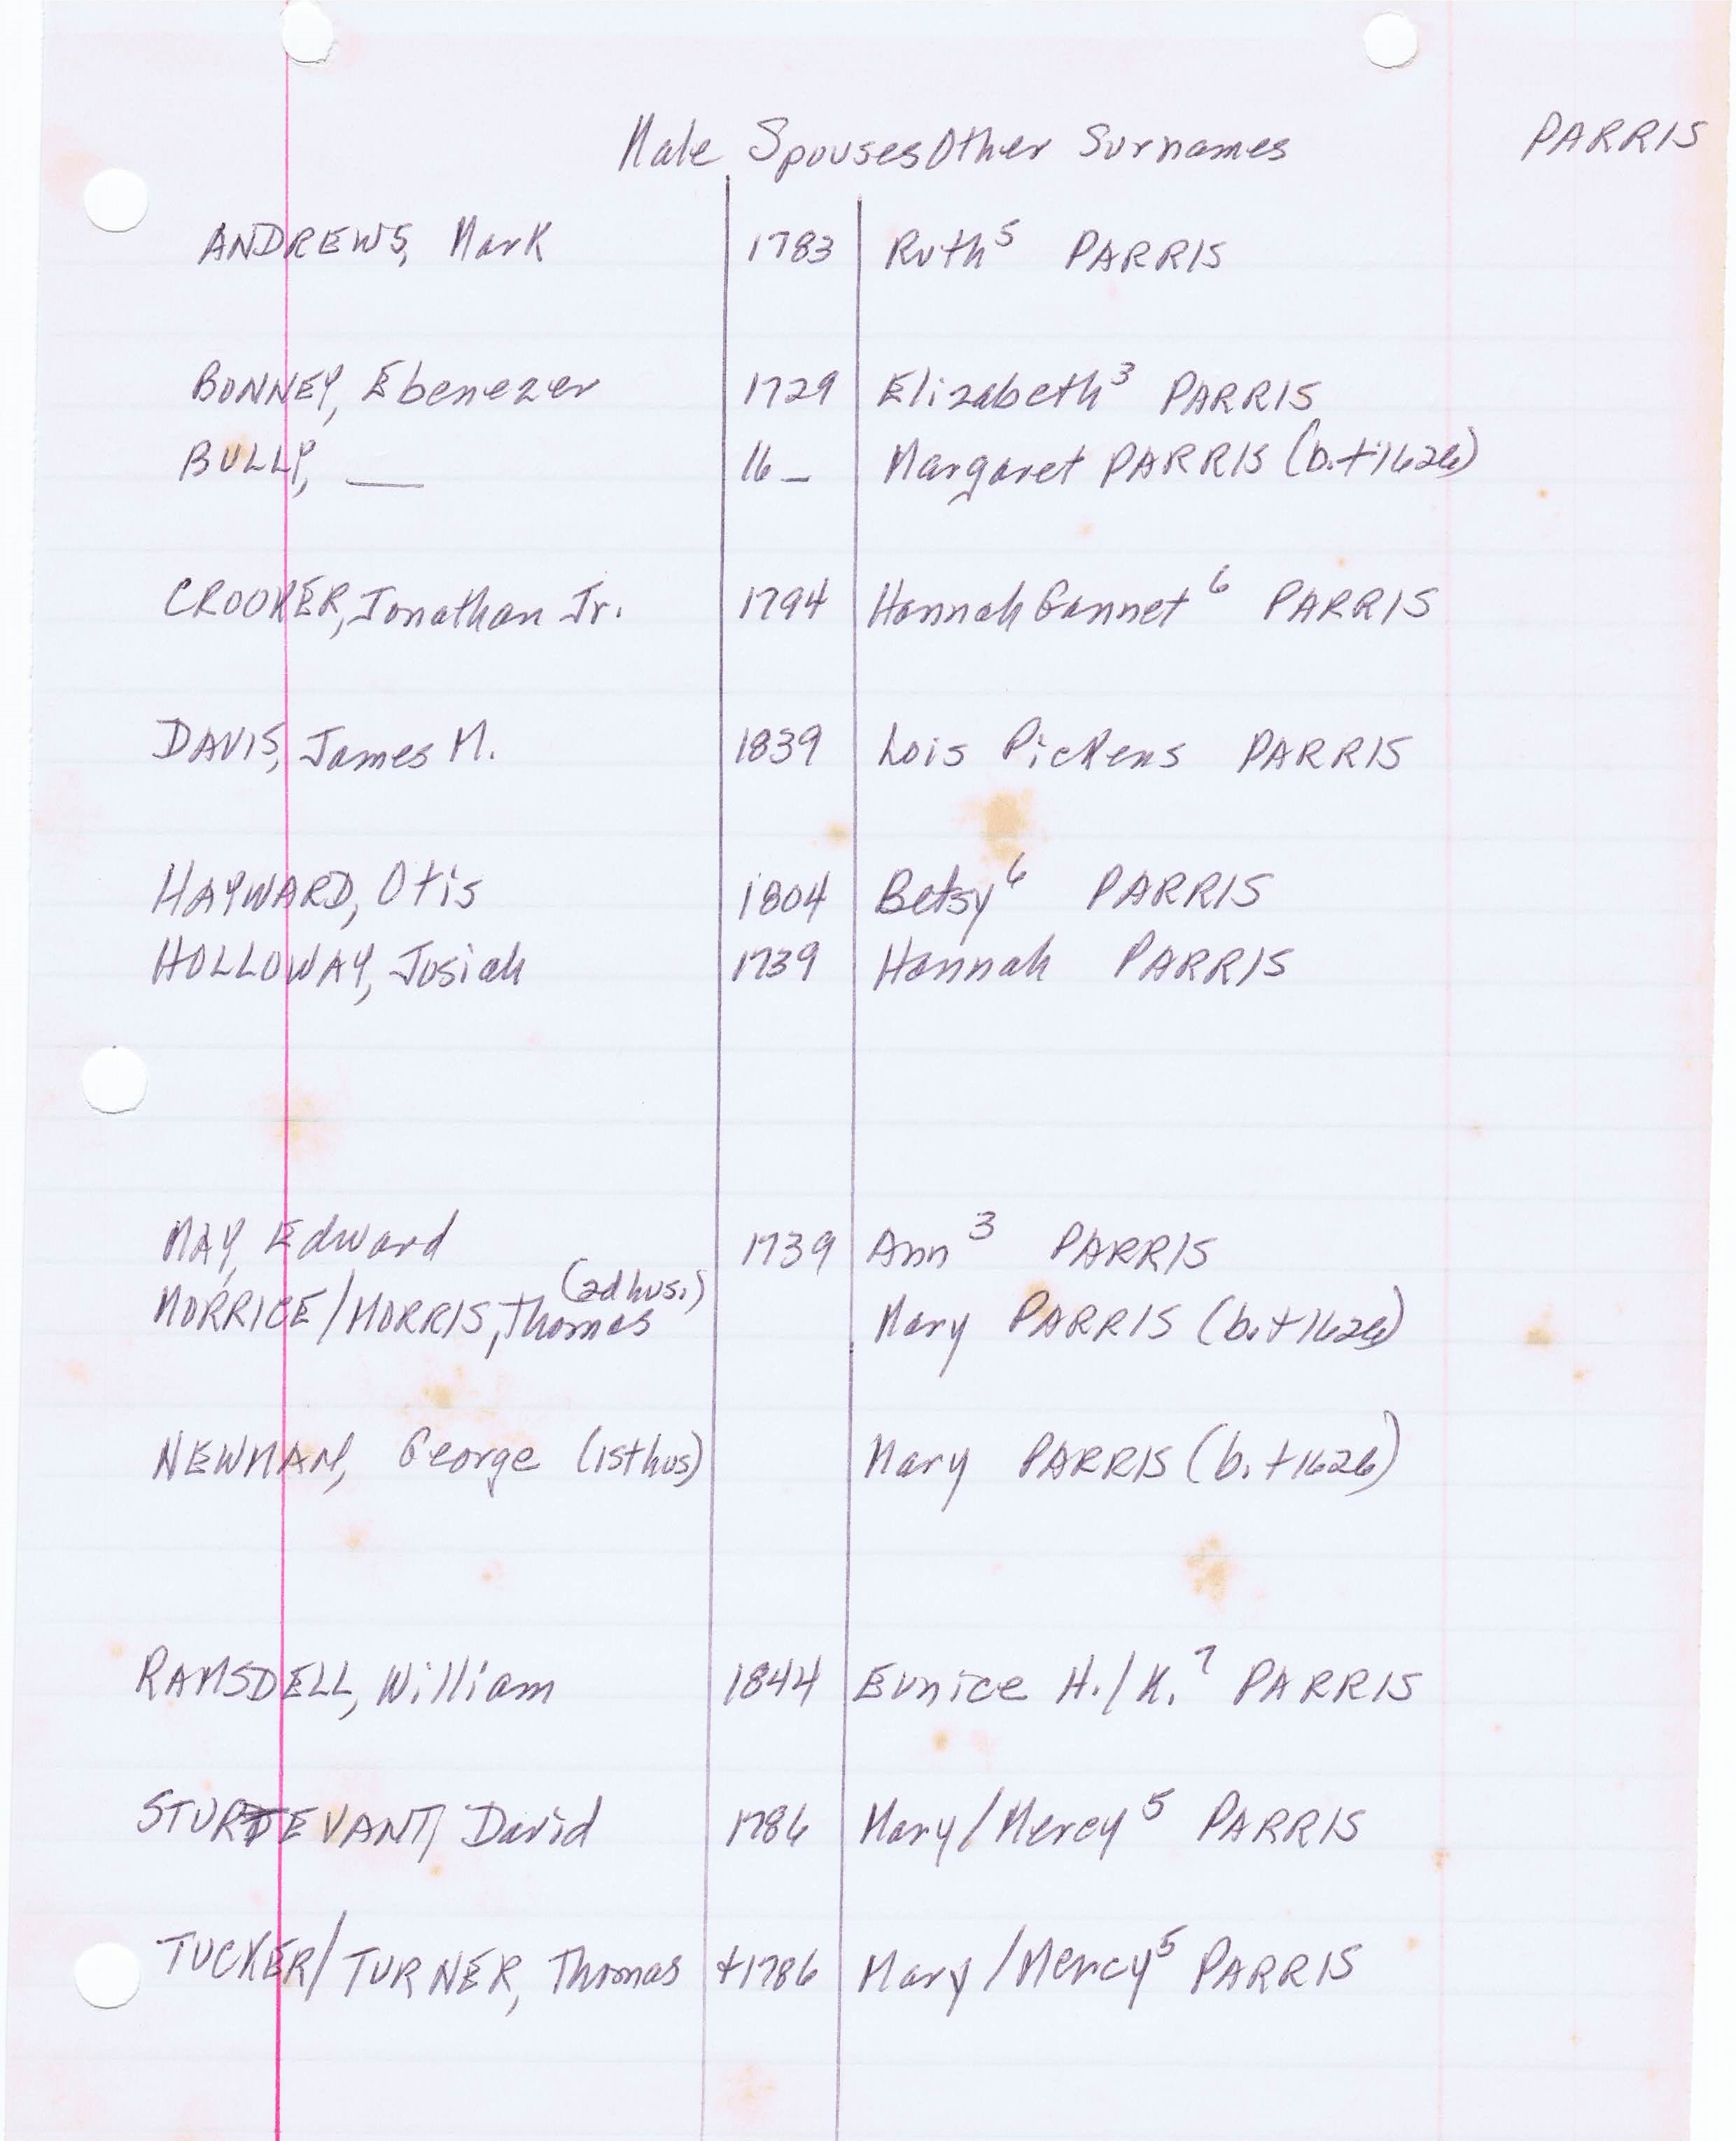 Male Spouses Other Surnames PARRIS
ANDREWS, Mark 1783 Ruth⁵ PARRIS
BONNEY, Ebenezer 1729 Elizabeth³ PARRIS
BULLY, __ 16_ Margaret PARRIS (b.+1626)
CROOKER, Jonathan Jr. 1794 Hannah Gannet⁶ PARRIS
DAVIS, James M. 1839 Lois Pickens PARRIS
HAYWARD, Otis 1804 Betsy⁶ PARRIS
HOLLOWAY, Josiah 1739 Hannah PARRIS
MAY, Edward 1739 Ann³ PARRIS
MORRICE/MORRIS, Thomas (2d hus.) Mary PARRIS (b.+1626)
NEWMAN, George (1st hus) Mary PARRIS (b.+1626)
RAMSDELL, William 1844 Eunice H./K.⁷ PARRIS
STURTEVANT, David 1786 Mary/Mercy⁵ PARRIS
TUCKER/TURNER, Thomas +1786 Mary/Mercy⁵ PARRIS